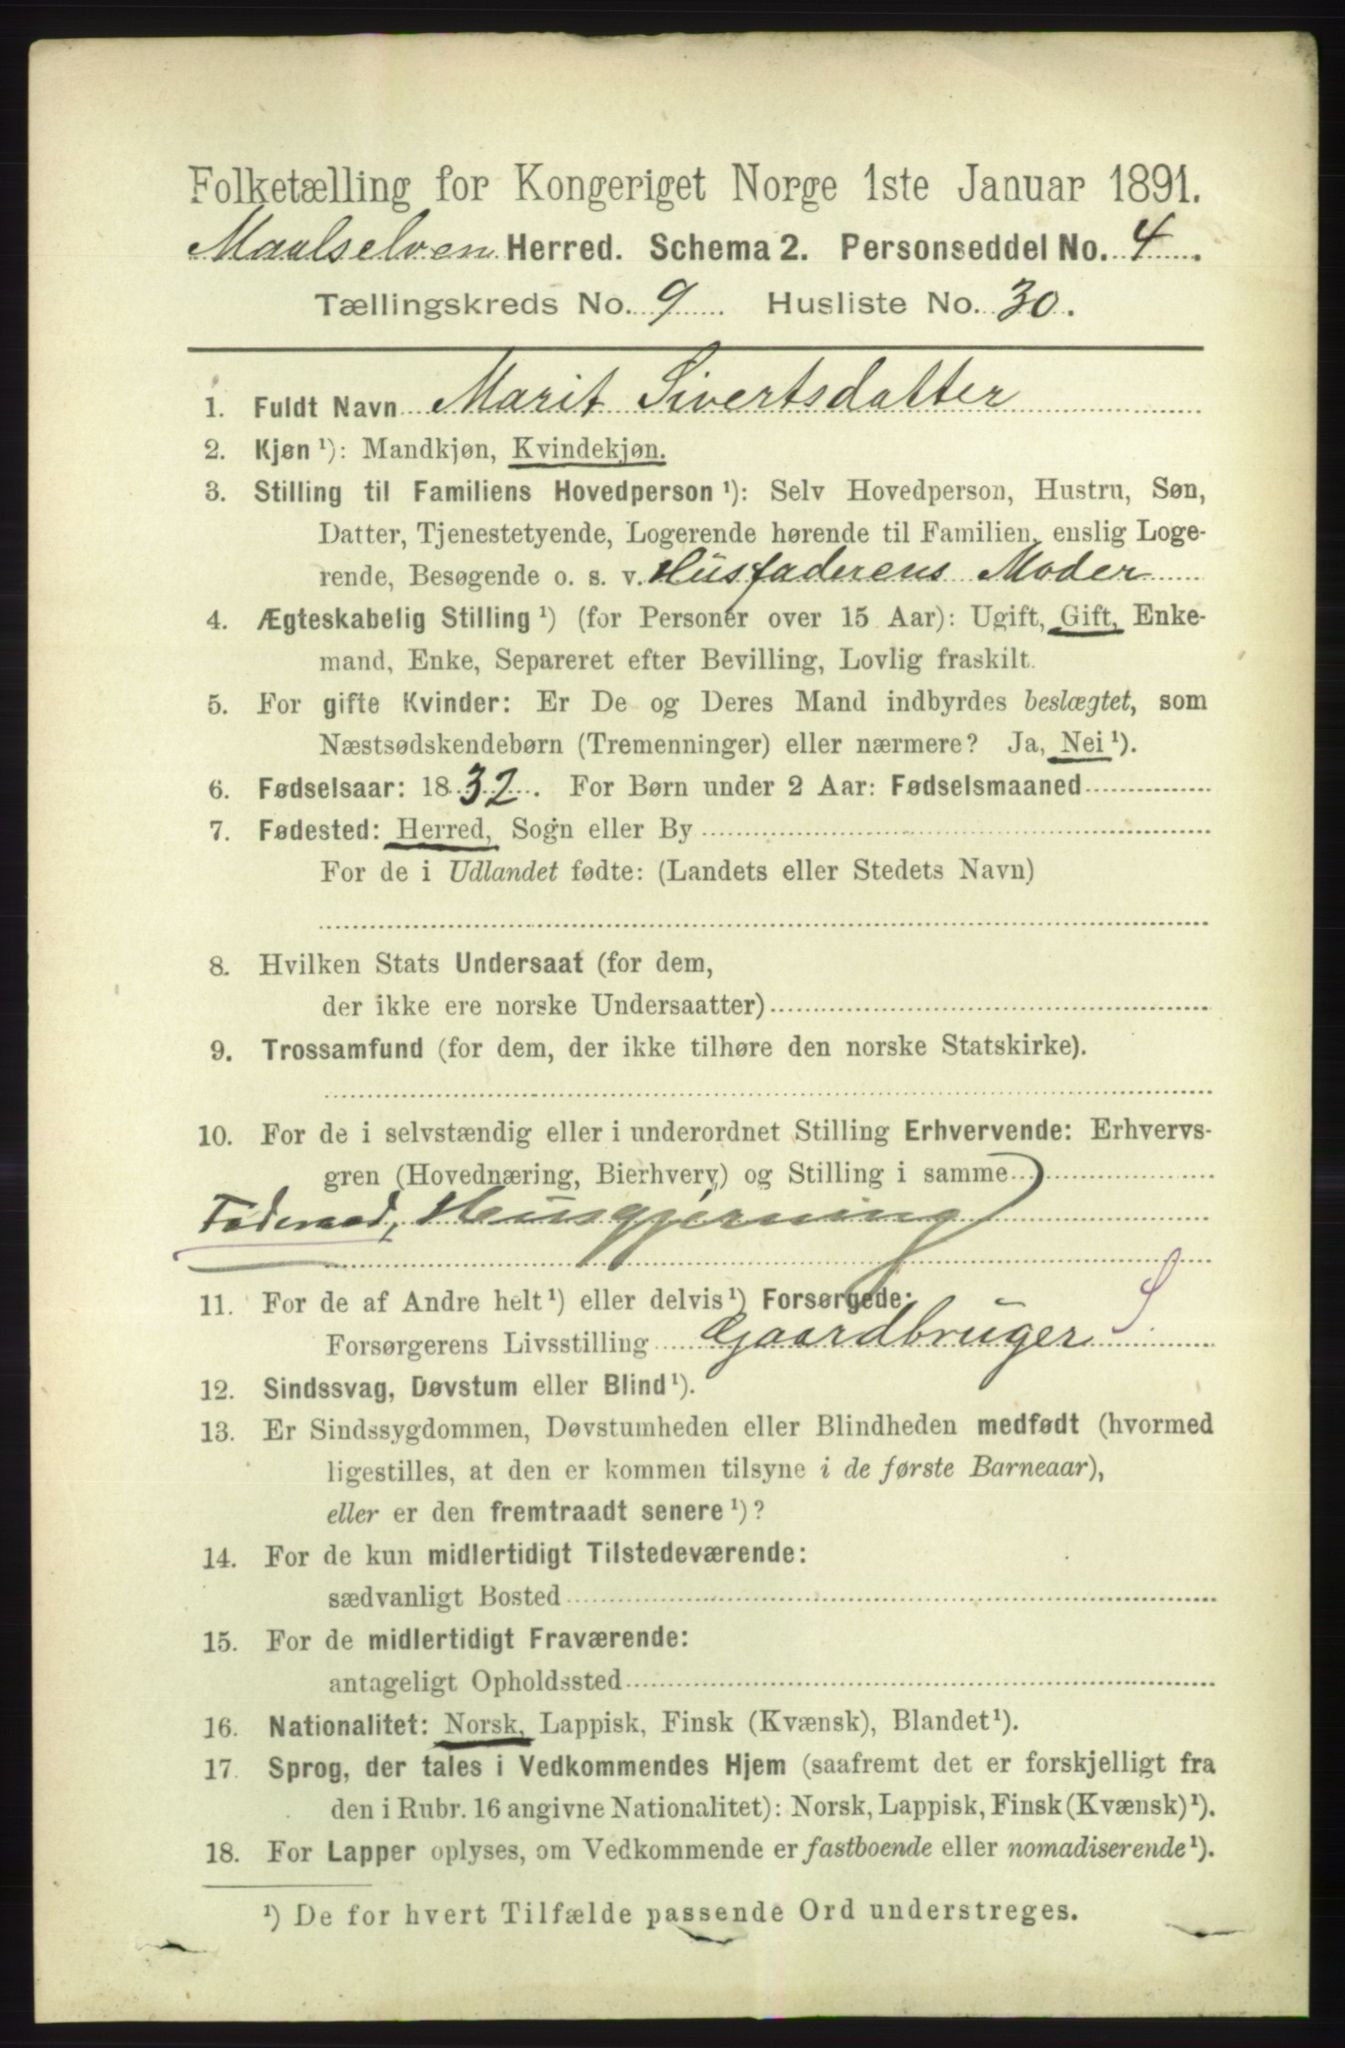 Folketælling for Kongeriget Norge 1ste Januar 1891.
Maalselven Herred. Schema 2. Personseddel No. 4.
Tællingskreds No. 9 Husliste No. 30.
1. Fuldt Navn Marit Sivertsdatter
2. Kjøn ¹): Mandkjøn, Kvindekjøn.
3. Stilling til Familiens Hovedperson ¹): Selv Hovedperson, Hustru, Søn,
Datter, Tjenestetyende, Logerende hørende til Familien, enslig Loge-
rende, Besøgende o. s. v. Husfaderens Moder
4. Ægteskabelig Stilling ¹) (for Personer over 15 Aar): Ugift, Gift, Enke-
mand, Enke, Separeret efter Bevilling, Lovlig fraskilt.
5. For gifte Kvinder: Er De og Deres Mand indbyrdes beslægtet, som
Næstsødskendebørn (Tremenninger) eller nærmere? Ja, Nei ¹).
6. Fødselsaar: 1832. For Børn under 2 Aar: Fødselsmaaned
7. Fødested: Herred, Sogn eller By
For de i Udlandet fødte: (Landets eller Stedets Navn)
8. Hvilken Stats Undersaat (for dem,
der ikke ere norske Undersaatter)
9. Trossamfund (for dem, der ikke tilhøre den norske Statskirke).
10. For de i selvstændig eller i underordnet Stilling Erhvervende: Erhvervs-
gren (Hovednæring, Bierhverv) og Stilling i samme
Føderaad, Husgjerning
11. For de af Andre helt ¹) eller delvis ¹) Forsørgede:
Forsørgerens Livsstilling Gaardbruger S
12. Sindssvag, Døvstum eller Blind ¹).
13. Er Sindssygdommen, Døvstumheden eller Blindheden medfødt (hvormed
ligestilles, at den er kommen tilsyne i de første Barneaar),
eller er den fremtraadt senere ¹)?
14. For de kun midlertidigt Tilstedeværende:
sædvanligt Bosted
15. For de midlertidigt Fraværende:
antageligt Opholdssted
16. Nationalitet: Norsk, Lappisk, Finsk (Kvænsk), Blandet ¹).
17. Sprog, der tales i Vedkommendes Hjem (saafremt det er forskjelligt fra
den i Rubr. 16 angivne Nationalitet): Norsk, Lappisk, Finsk (Kvænsk) ¹).
18. For Lapper oplyses, om Vedkommende er fastboende eller nomadiserende ¹).
¹) De for hvert Tilfælde passende Ord understreges.